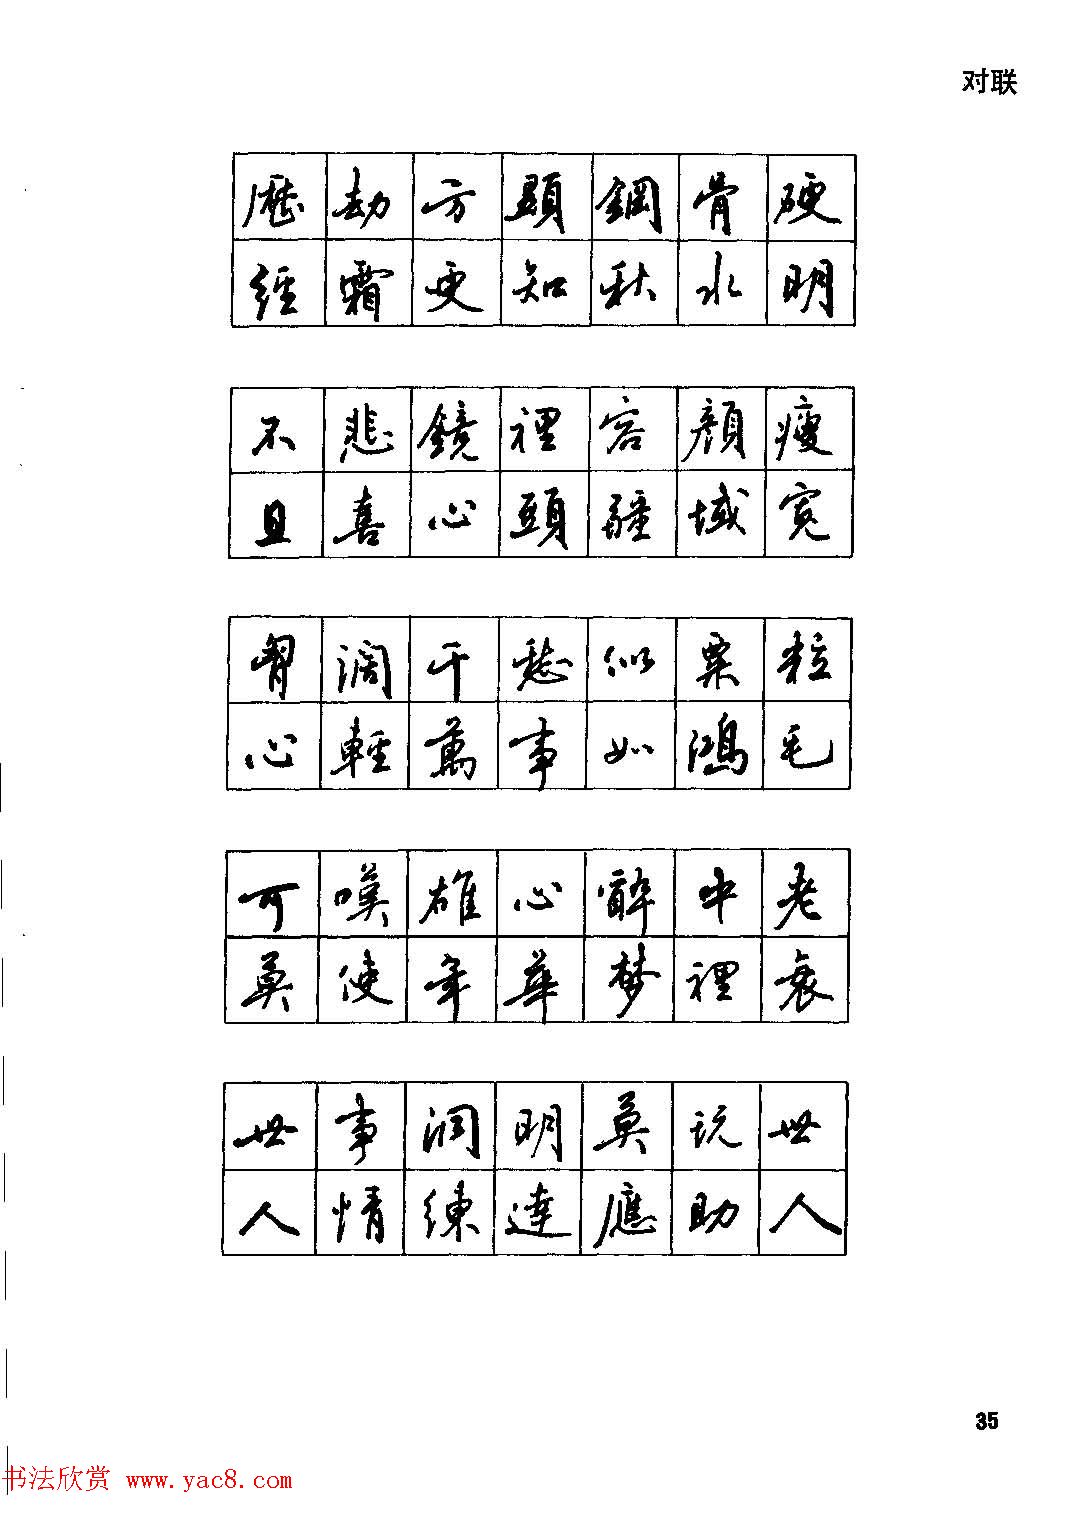 对联
歷劫方顯鋼骨硬
經霜更知秋水明
不悲鏡裡容顏瘦
且喜心頭疆域宽
胷阔千愁似粟粒
心輕萬事如鴻毛
可嘆雄心醉中老
莫使年華梦裡衰
世事洞明莫玩世
人情練達應助人
35
书法欣赏 www.yac8.com